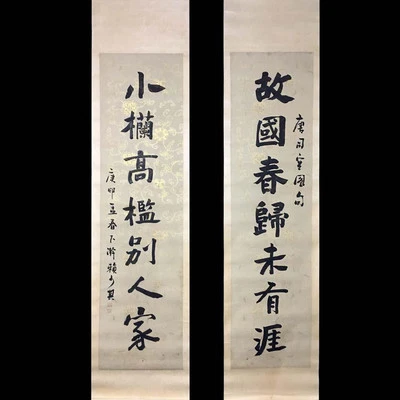 故國春歸未有涯
唐司空圖句
小欄高檻別人家
庚孟春下澣賴少其